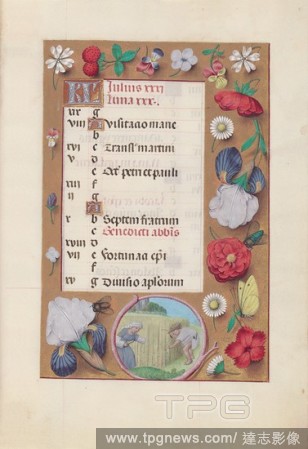 KL Julius xxxi
Luna xxx.
xix g
viii A Visitacio marie
b
xvi c Transl' martini
v d
e Oct' petri et pauli
xiii f
ii g
A
x b Septem fratrum
c Benedicti abbis
xviii d
vii e
f
g Divisio aplorum
TPG
www.tpgnews.com/達志影像